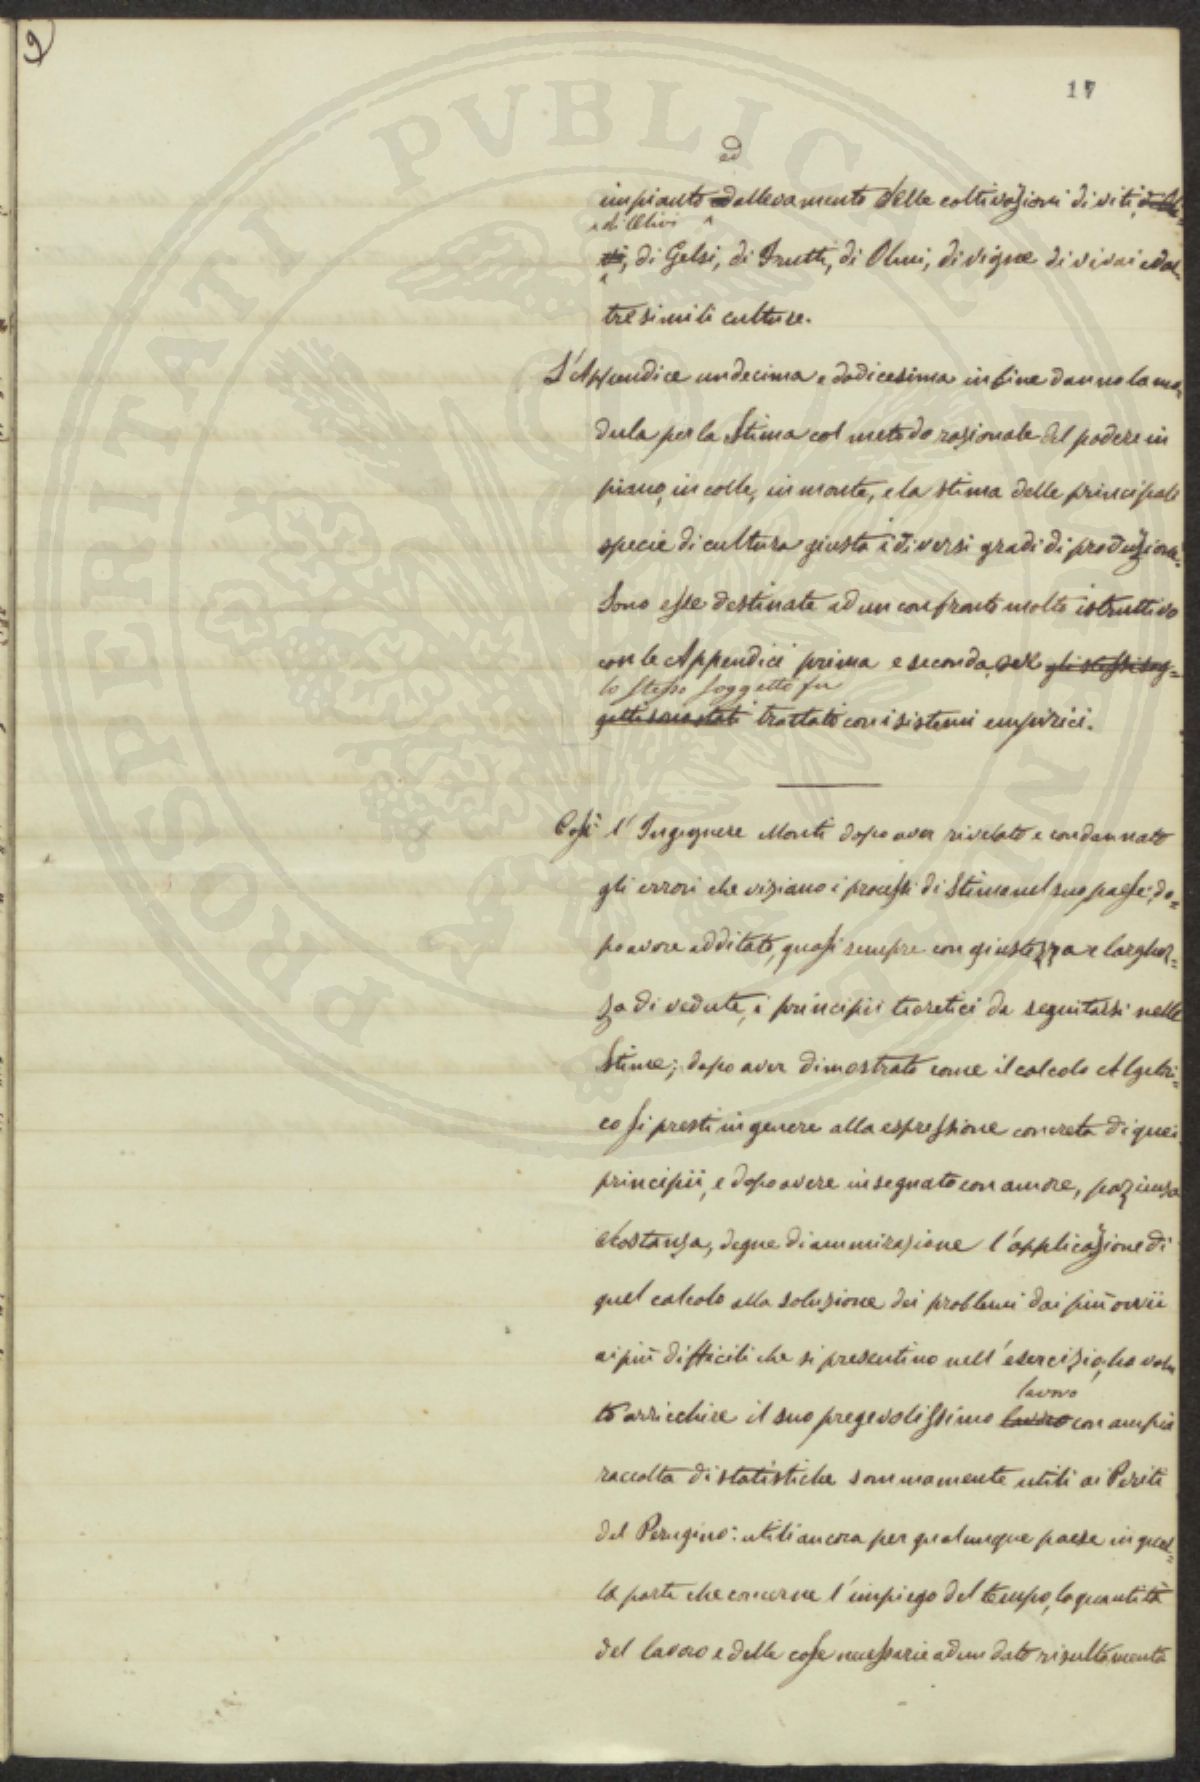 9
17
ed
impianto ed allevamento delle coltivazioni di viti, d'Oli-
e di Olivi
vi, di Gelsi, di Frutti, di Olmi, di vigne di vivai ed al-
tre simili culture.
L'Appendice undecima e dodicesima infine danno la mo-
dula per la Stima col metodo razionale del podere in
piano, in colle, in monte, e la stima delle principali
specie di cultura giusta i diversi gradi di produzione.
Sono esse destinate ad un confronto molto istruttivo
con le Appendici prima e seconda, ove gli stessi sog-
lo stesso soggetto fu
getti sono stati trattato con i sistemi empirici.
Così l'Ingegnere Monti dopo aver rivelato e condannato
gli errori che viziano i processi di Stima nel suo paese; do-
po avere additato, quasi sempre con giustezza e larghez-
za di vedute, i principii teoretici da seguitarsi nelle
Stime; dopo aver dimostrato come il calcolo Algebri-
co si presti in genere alla espressione concreta di quei
principii, e dopo avere insegnato con amore, pazienza
e costanza, degne di ammirazione l'applicazione di
quel calcolo alla soluzione dei problemi dai più ovvii
ai più difficili che si presentino nell'esercizio, ha volu
lavoro
to arricchire il suo pregevolissimo lavoro con ampia
raccolta di statistiche sommamente utili ai Periti
del Perugino: utili ancora per qualunque paese in quel-
la parte che concerne l'impiego del tempo, la quantità
del lavoro e delle cose necessarie ad un dato risultamento
PROSPERITATI PVBLICAE